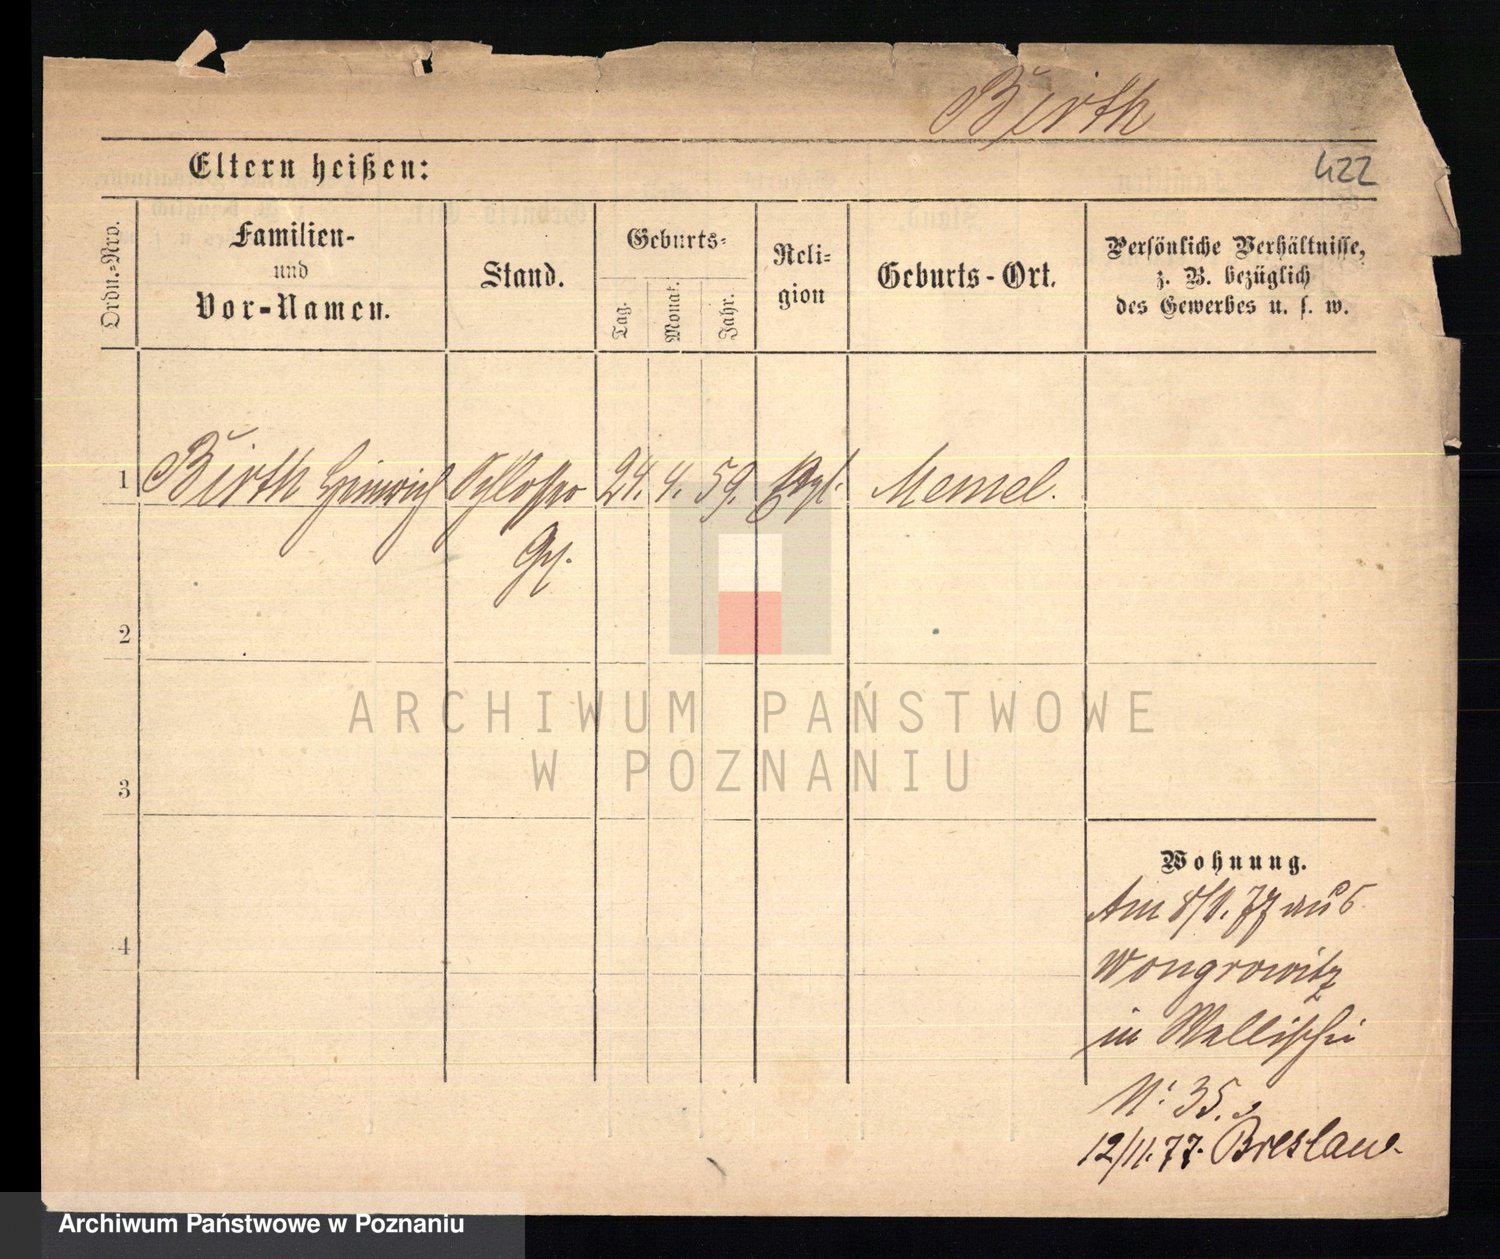 Birth
422
Eltern heißen:
Ordn.-Nro.
Familien-
und
Vor-Namen.
Stand.
Geburts-
Tag.
Monat.
Jahr.
Reli-
gion
Geburts-Ort.
Persönliche Verhältnisse,
z. B. bezüglich
des Gewerbes u. s. w.
1 Birth Heinrich Schlosser 24. 4. 59. Evgl. Memel.
Gs.
2
3
4
Wohnung.
Am 8/9. 77 aus
Wongrowitz
in Wallischei
N: 35.
12/11.77. Breslau.
ARCHIWUM PAŃSTWOWE
W POZNANIU
Archiwum Państwowe w Poznaniu